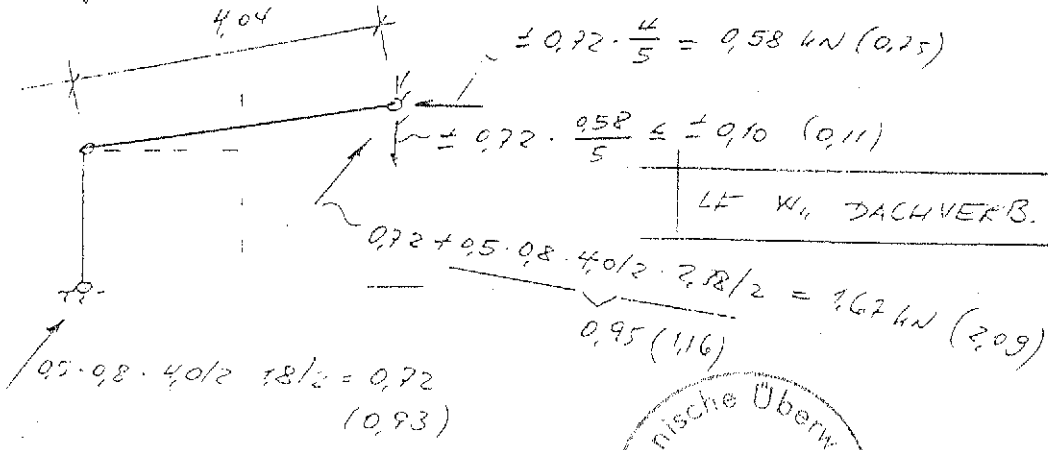 4,04
± 0,72 · 4/5 = 0,58 kN (0,75)
± 0,72 · 0,58/5 ≤ ± 0,10 (0,11)
LF W,, DACHVERB.
0,72 + 0,5 · 0,8 · 4,0/2 · 2,38/2 = 1,67 kN (2,09)
0,95 (1,16)
0,5 · 0,8 · 4,0/2 1,8/2 = 0,72
(0,93)
nische Überw